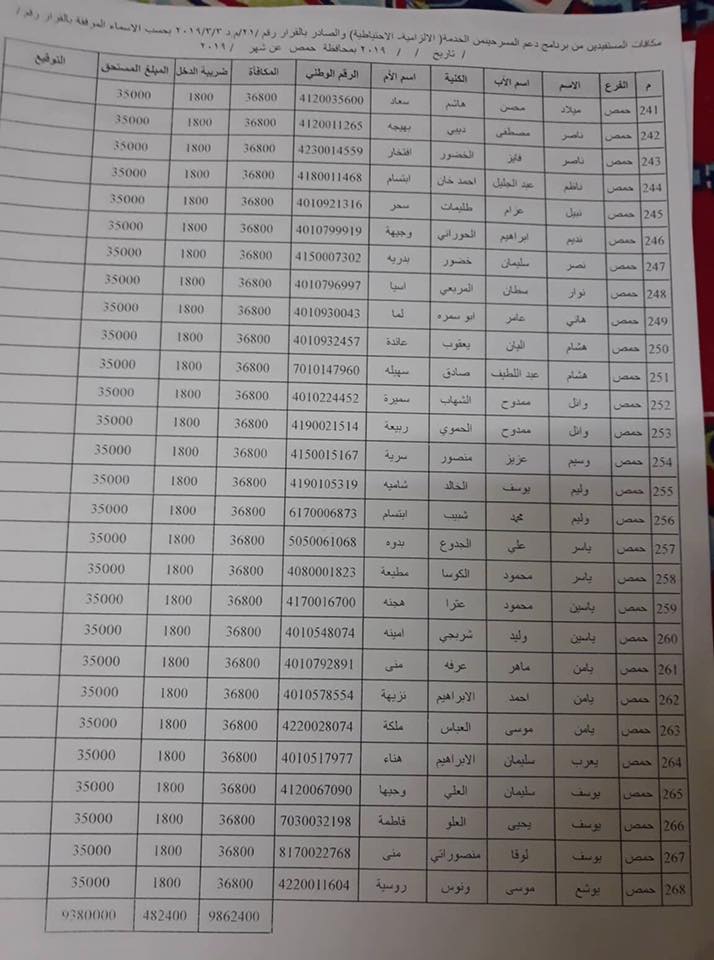 مكافات المستفيدين من برنامج دعم المسرحينمن الخدمة( الالزامية- الاحتياطية) والصادر بالقرار رقم /٢١/م.د ٢٠١٩/٣/٣ بحسب الاسماء المرفقة بالقرار رقم /
/ تاريخ / / ٢٠١٩ بمحافظة حمص عن شهر / ٢٠١٩
م الفرع الاسم اسم الأب الكنية اسم الأم الرقم الوطني المكافأة ضريبة الدخل المبلغ المستحق التوقيع
241 حمص ميلاد محسن هاشم سعاد 4120035600 36800 1800 35000
242 حمص ناصر مصطفى ديبي بهيجه 4120011265 36800 1800 35000
243 حمص ناصر فايز الخضور افتخار 4230014559 36800 1800 35000
244 حمص ناظم عبد الجليل احمد خان ابتسام 4180011468 36800 1800 35000
245 حمص نبيل عزام طليمات سحر 4010921316 36800 1800 35000
246 حمص نديم ابراهيم الحوراني وجيهة 4010799919 36800 1800 35000
247 حمص نصر سليمان خضور بدريه 4150007302 36800 1800 35000
248 حمص نوار سطان المربعي اسيا 4010796997 36800 1800 35000
249 حمص هاني عامر ابو سمره لما 4010930043 36800 1800 35000
250 حمص هشام اليان يعقوب عائدة 4010932457 36800 1800 35000
251 حمص هشام عبد اللطيف صادق سهيله 7010147960 36800 1800 35000
252 حمص وائل ممدوح الشهاب سميرة 4010224452 36800 1800 35000
253 حمص وائل ممدوح الحموي ربيعة 4190021514 36800 1800 35000
254 حمص وسيم عزيز منصور سرية 4150015167 36800 1800 35000
255 حمص وليم يوسف الخالد شاميه 4190105319 36800 1800 35000
256 حمص وليم محمد شبيب ابتسام 6170006873 36800 1800 35000
257 حمص ياسر علي الجدوع بدوه 5050061068 36800 1800 35000
258 حمص ياسر محمود الكوسا مطيعة 4080001823 36800 1800 35000
259 حمص ياسين محمود عترا هجنه 4170016700 36800 1800 35000
260 حمص ياسين وليد شربجي امينه 4010548074 36800 1800 35000
261 حمص يامن ماهر عرفه منى 4010792891 36800 1800 35000
262 حمص يامن احمد الابراهيم نزيهة 4010578554 36800 1800 35000
263 حمص يامن موسى العباس ملكة 4220028074 36800 1800 35000
264 حمص يعرب سليمان الابراهيم هناء 4010517977 36800 1800 35000
265 حمص يوسف سليمان العلي وحيها 4120067090 36800 1800 35000
266 حمص يوسف يحيى العلو فاطمة 7030032198 36800 1800 35000
267 حمص يوسف لوقا منصوراتي منى 8170022768 36800 1800 35000
268 حمص يوشع موسى ونوس روسية 4220011604 36800 1800 35000
9862400 482400 9380000